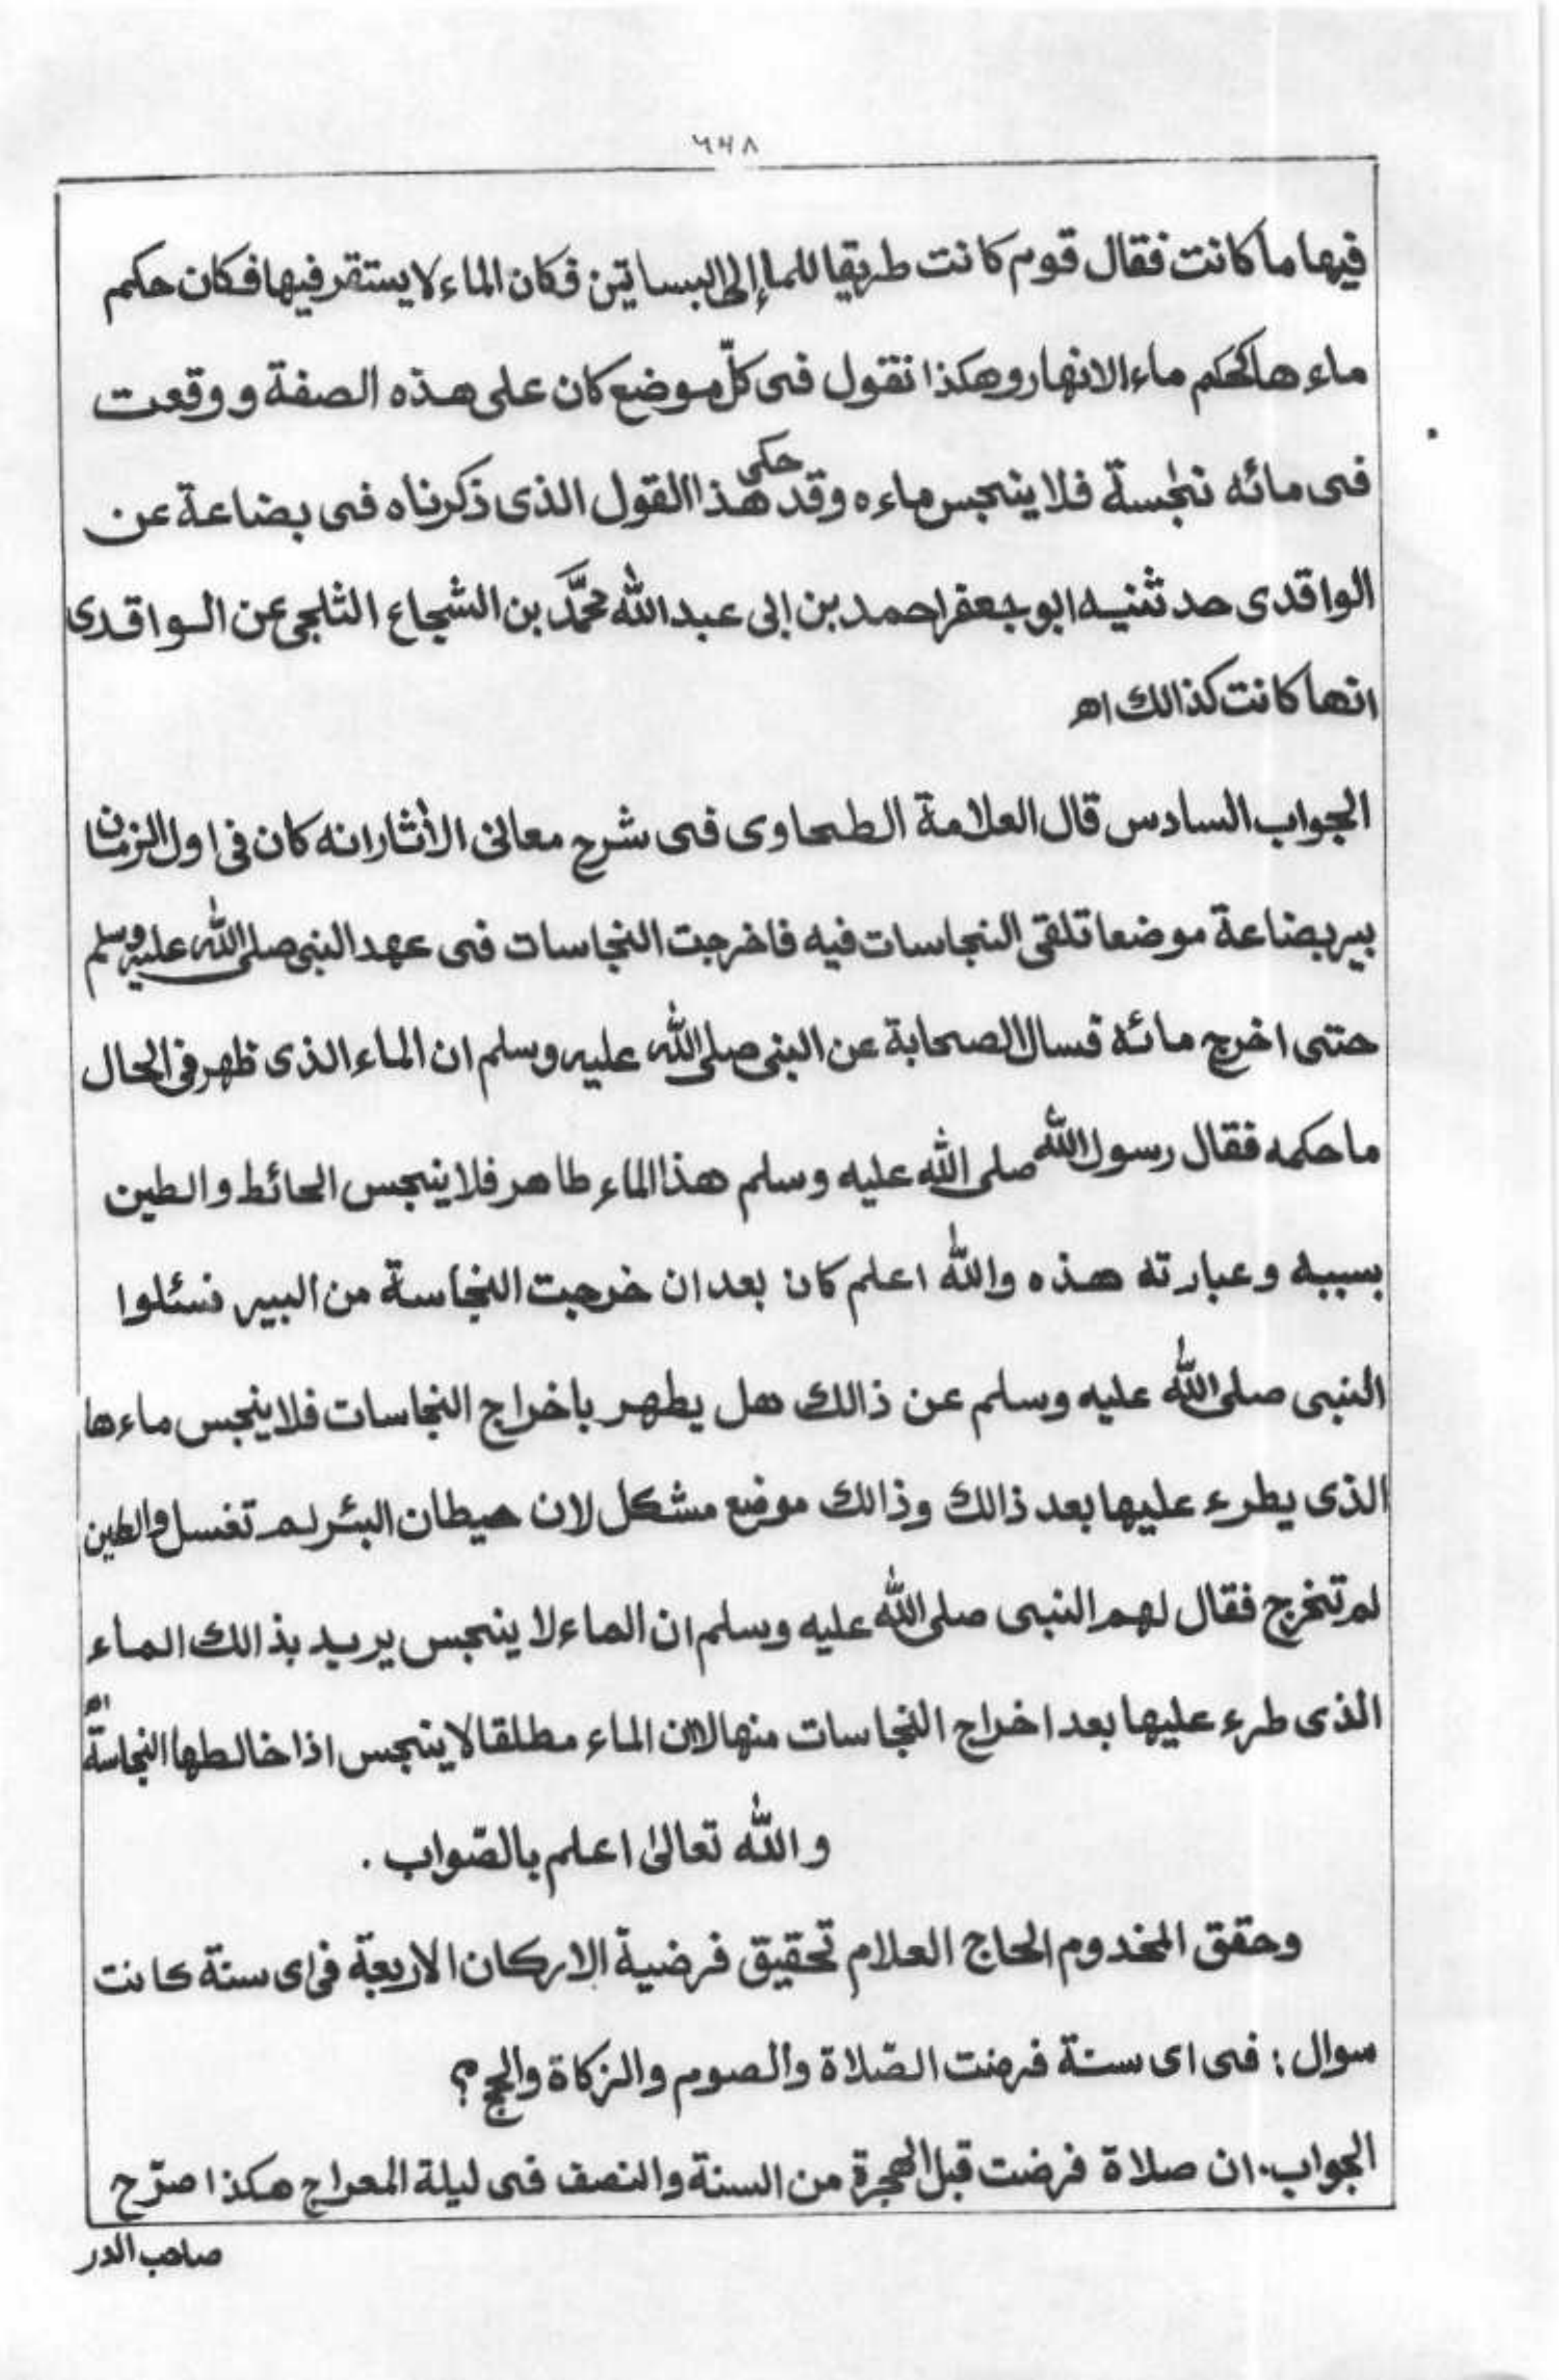 ٦٤٨
فيها ما كانت فقال قوم كانت طريقا للماء إلى البساتين فكان الماء لا يستقر فيها فكان حكم
ماءها كحكم ماء الانهار وهكذا نقول فى كلّ موضع كان على هذه الصفة و وقعت
فى مائه نجاسة فلا ينجس ماءه وقد حكى هذا القول الذى ذكرناه فى بضاعة عن
الواقدى حدثنيه ابو جعفر احمد بن ابى عبد الله محمَّد بن الشجاع الثلجى عن الواقدى
انها كانت كذالك اه
الجواب السادس قال العلامة الطحاوى فى شرح معانى الأثار انه كان فى اول الزمان
بير بضاعة موضعا تلقى النجاسات فيه فاخرجت النجاسات فى عهد النبى صلى الله عليه وسلم
حتى اخرج مائه فسال الصحابة عن النبى صلى الله عليه وسلم ان الماء الذى ظهر فى الحال
ما حكمه فقال رسول الله صلى الله عليه وسلم هذا الماء طاهر فلا ينجس الحائط والطين
بسببه وعبارته هذه والله اعلم كان بعد ان خرجت النجاسة من البير فسئلوا
النبى صلى الله عليه وسلم عن ذالك هل يطهر باخراج النجاسات فلا ينجس ماءها
الذى يطرء عليها بعد ذالك وذالك موضع مشكل لان حيطان البئر لم تغسل والطين
لم تخرج فقال لهم النبى صلى الله عليه وسلم ان الماء لا ينجس يريد بذالك الماء
الذى طرء عليها بعد اخراج النجاسات منها لا ان الماء مطلقا لا ينجس اذا خالطها النجاسة اه
و الله تعالىٰ اعلم بالصّواب .
وحقق المخدوم الحاج العلام تحقيق فرضية الاركان الاربعة فى اى سنة كانت
سوال : فى اى سنة فرضت الصّلاة والصوم والزكاة والحج ؟
الجواب . ان صلاة فرضت قبل الهجرة من السنة والنصف فى ليلة المعراج هكذا صرّح
صاحب الدر